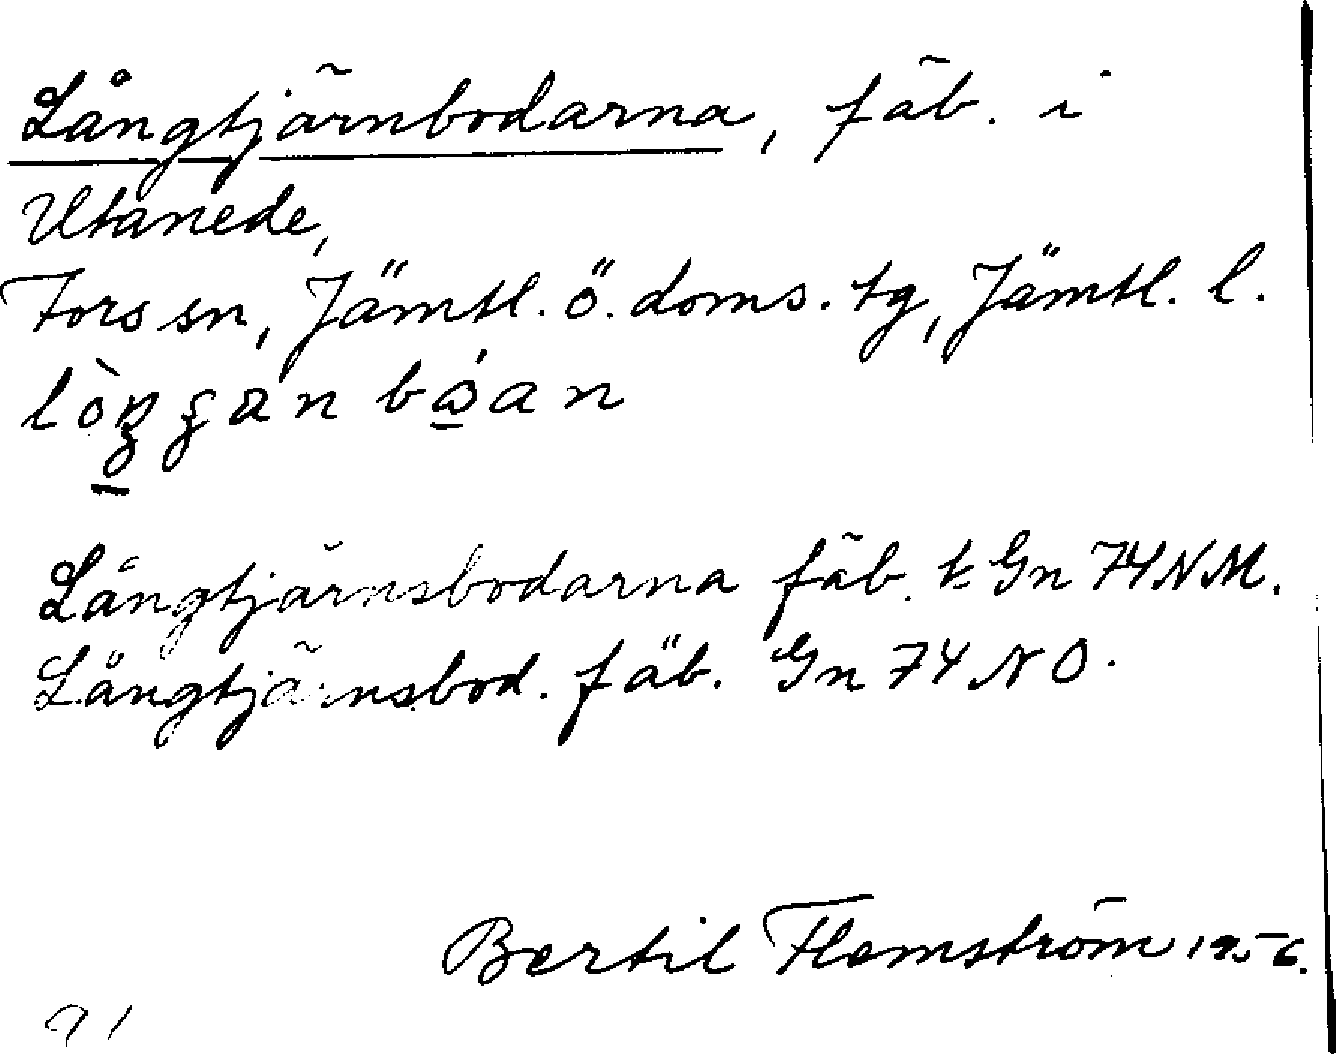 Långtjärnbodarna, fäb. i
Utanede,
Fors sn, Jämtl. ö. doms. tg, Jämtl. l.
Långtjärnsbodarna fäb. k Gn 74 NM.
Långtjärnsbod. fäb. Gn 74 NO.
Bertil Flemström 1956.
91